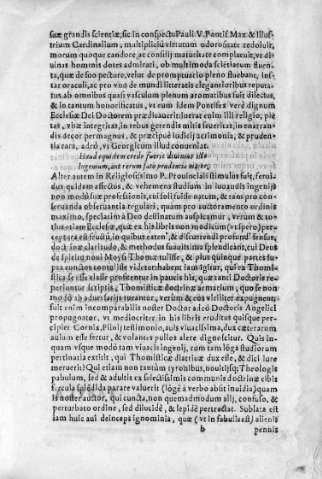 suæ grandis scientiæ, sic in conspectu Pauli V. Pontif. Max & Illus-
trium Cardinalium, multiplici virtutum odoro redoluit,
morum quoque candore, ac consilij maturitate complacuit, ve di-
uinas hominis dotes admirati, ob multimoda scientiarum fluen-
ta, quæ de suo pectore, velut de promptuario pleno fluebant, ins-
tar oraculi, ac pro viro de mundi litteratis elegantioribus reputa-
tus ab omnibus quasi vasculum plenum aromatibus fuit dilectus,
& in tantum honorificatus, vt eum idem Pontifex verè dignum
Ecclesiæ Dei Doctorem prædiauerit: inerat enim illi religio, pie-
tas, vitæ integritas, in rebus gerendis mitis seueritas, in enarran-
dis decor permagnus, & præcipuè iudicij acrimonia, & pruden-
tia rara, adeò, vt Georgicum illud conueniat.
Haud equidem credo fuerit diuinius illo
Ingenium, aut rerum fato prudentia maior,
Alter autem in Religiosissimo P. Prouinciali stimulus fuit, ferui-
dus quidam affectus, & vehemens studium in iuuandis ingenijs
non modò suæ professionis, cui soli fuisse natum, & raro pro con-
seruanda obseruantia regulari, quam pro auctoramento ordinis
maximo, speciatim à Deo destinatum auspicamur, verum & to-
tius etiam Ecclesiæ, quæ ex his libris non modicum (vt spero) per-
ceptura est fructum, in quibus eaten' & discurrendi profund' sensus,
doctrinæ claritudo, & methodus suauissima splendicant, cui Deus
de spiritu noui Moysi Thomæ tulisse, & plus quinque partes su-
pra cunctos contulisse videtur
ficæ scissa classe profitentur in paucis his, quæ tanti Doctoris re-
periuntur scriptis, Thomisticæ doctrinæ armarium, quo se non
modò ab aduersarijs tueantur, verùm & eos viriliter expugnent.
fuit enim incomparabilis noster Doctor adeò Doctoris Angelici
propugnator, vt mediocriter in his libris eruditus quisque per-
cipiet Cornia, Philosj testimonio, suis viuacissima, dux cæterarum
auium esse fertur, & volantes pullos alere dignoscitur. Quis in-
quam vsque modò tam viuacis ingenij, cum tam lógo studiorum
pertinatia extitit, qui Thomisticæ doctrinæ dux esse, & dici iure
meruerit? Qui etiam non tantùm tyronibus, nouisque Theologis
pabulum, sed & adultis ex selectissimis communis doctrinæ cibis
Escula splendida parare valuerit (lógè à verbo absit inuidia) quam
is noster auctor, qui cuncta, non quemadmodum alij, confuso, &
perturbato ordine, sed dilucidè, & lepidè pertractat. Sublata est
iam huic aui deinceps ignominia, quæ (vt in fabula est) alienis
b
pennis